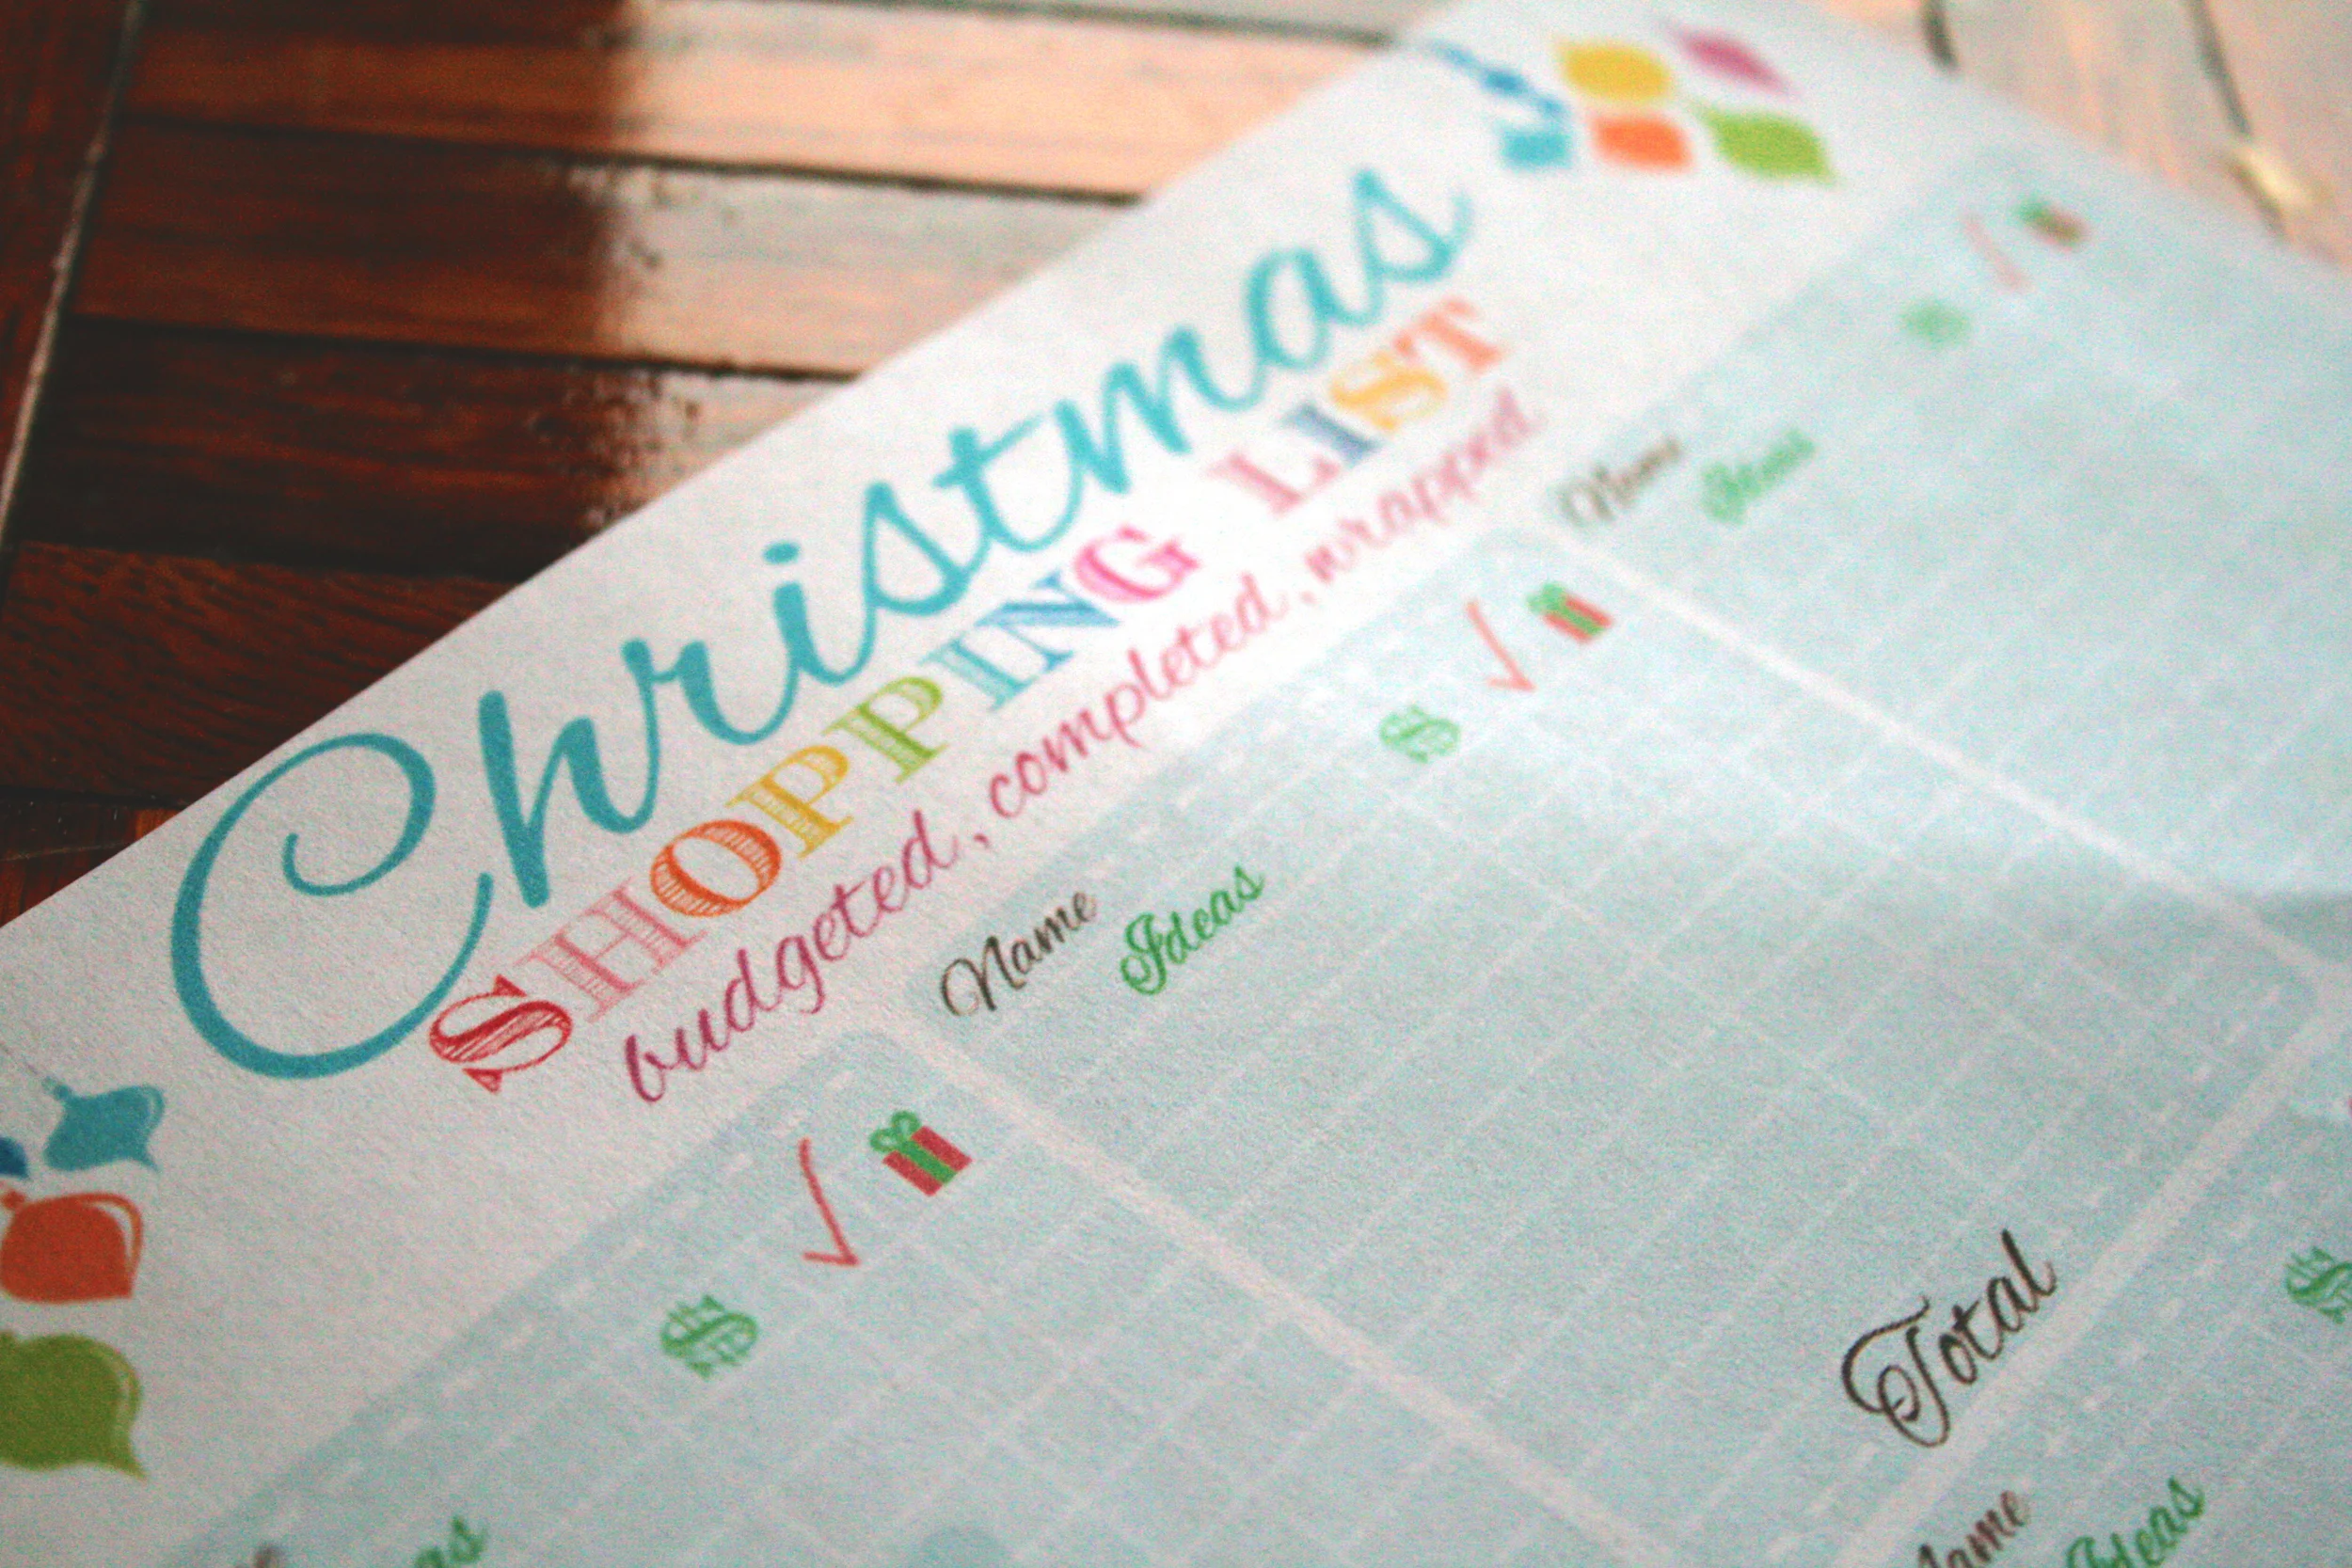 Christmas
SHOPPING LIST
budgeted, completed, wrapped
$ √
Name
Ideas
$ √
Name
Ideas
$ √
Total
Name
Ideas
$